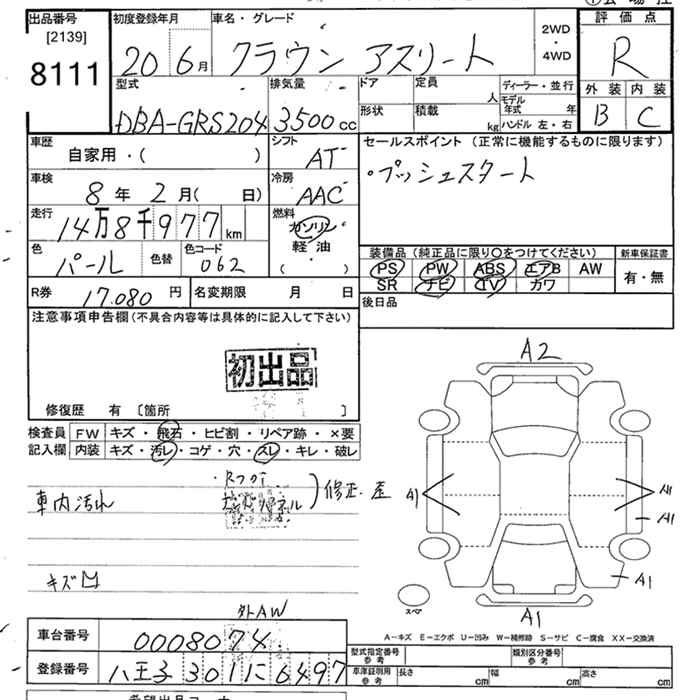 出品番号 初度登録年月 車名・グレード 2WD・4WD 評価点
[2139]
8111 20 6月 クラウン アスリート R
型式 排気量 ドア 定員 人 ディーラー・並行 外装 内装
DBA-GRS204 3500cc 形状 積載 kg モデル年式 年 ハンドル 左・右 B C
車歴 自家用・( ) シフト AT セールスポイント (正常に機能するものに限ります)
車検 8年 2月( 日) 冷房 AAC ・プッシュスタート
走行 14万8千977km 燃料 ガソリン
軽油
( )
色 パール 色替 色コード 062
装備品 (純正品に限り○をつけてください) 新車保証書
PS PW ABS エアB AW 有・無
SR ナビ TV カワ
R券 17.080円 名変期限 月 日 後日品
注意事項申告欄(不具合内容等は具体的に記入して下さい)
初出品
修復歴 有 [箇所 ]
検査員 FW キズ・飛石・ヒビ割・リペア跡・×要
記入欄 内装 キズ・汚レ・コゲ・穴・スレ・キレ・破レ
車内汚れ
修正・歪
キズ凹
外AW
A2
A1 A1
A1
A1
スペア
A1
A－キズ E－エクボ U－凹み W－補修跡 S－サビ C－腐食 XX－交換済
車台番号 0008074
登録番号 八王子301に6497
型式指定番号 参考 類別区分番号 参考
車庫証明用 参考 長さ cm 幅 cm 高さ cm